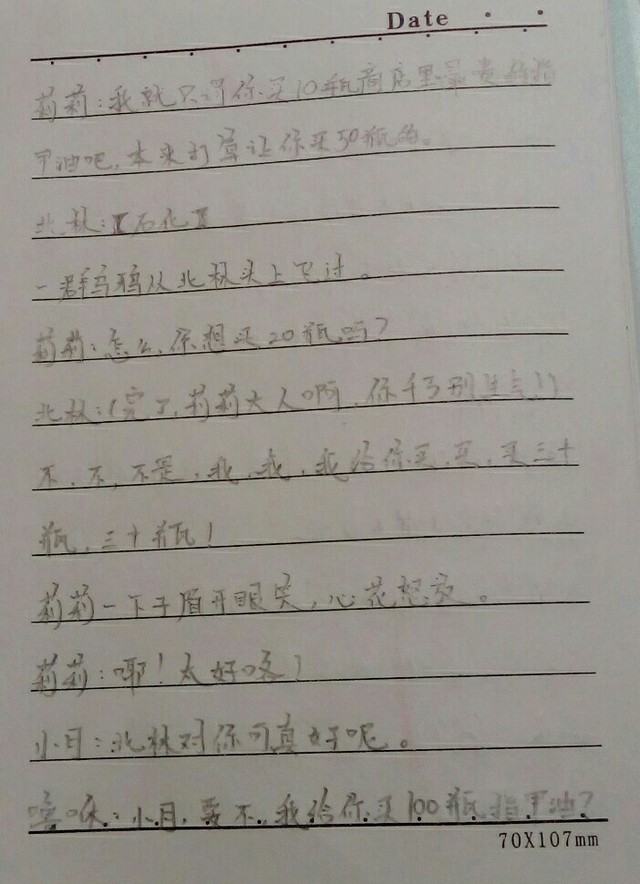 Date
莉莉:我就只罚你买10瓶商店里最贵的指
甲油吧,本来打算让你买50瓶的。
北极:【石化】
一群乌鸦从北极头上飞过。
莉莉:怎么,你想买20瓶吗?
北极:(完了,莉莉大人啊,你千万别生气!)
不,不,不是,我,我,我给你买,买,买三十
瓶,三十瓶!
莉莉一下子眉开眼笑,心花怒放。
莉莉:耶!太好咯!
小月:北极对你可真好呢。
:小月,要不,我给你买100瓶指甲油?
70X107mm